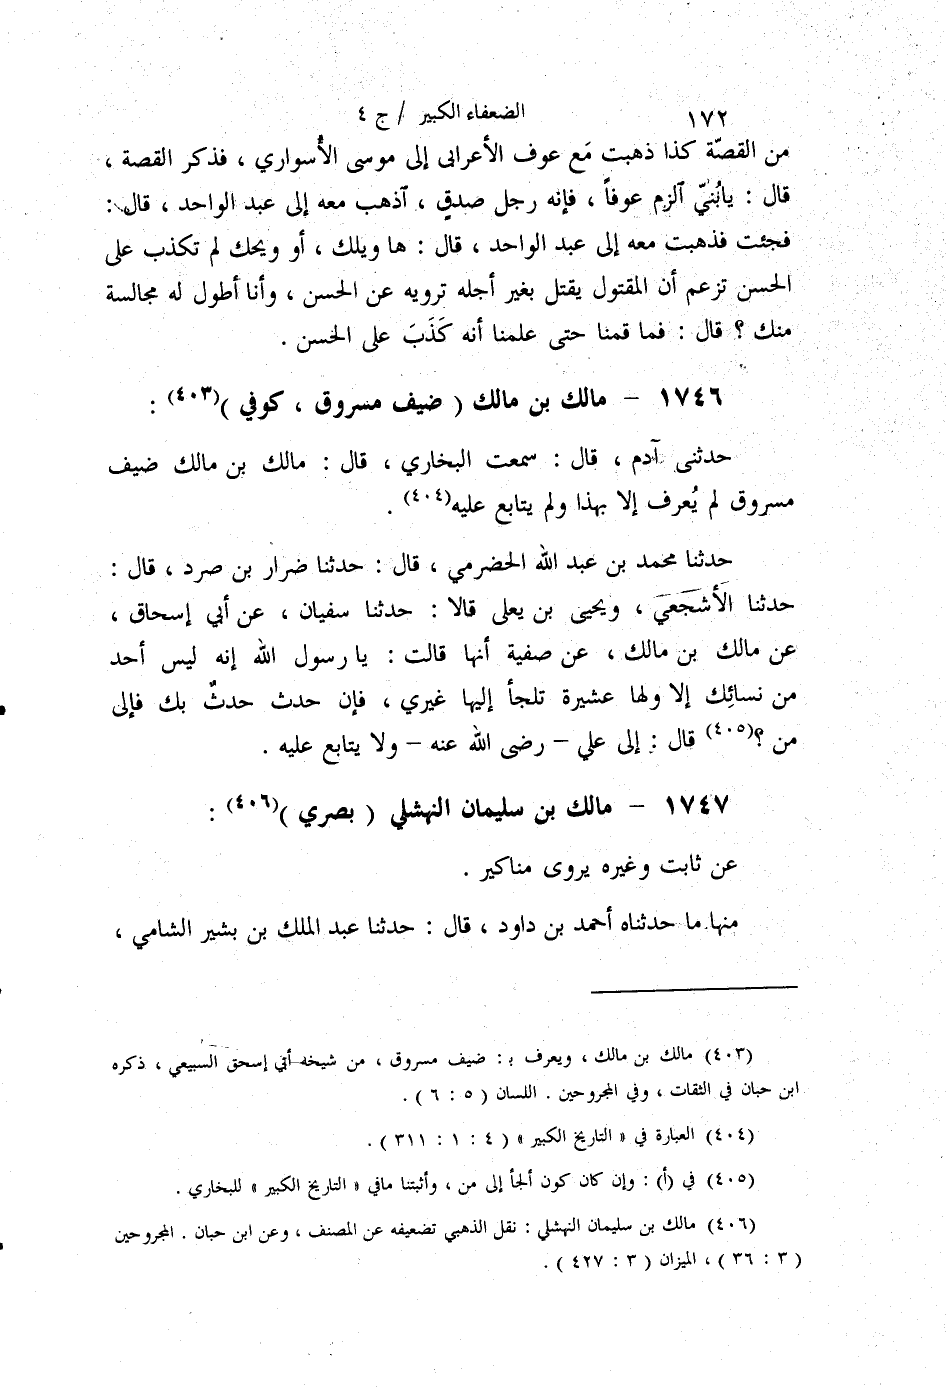 ١٧٢ الضعفاء الكبير / ج ٤
من القصّة كذا ذهبت مَع عوف الأعرابى إلى موسى الأُسواري ، فذكر القصة ،
قال : يابُنيّ آلزم عوفاً ، فإنه رجل صدقٍ ، آذهب معه إلى عبد الواحد ، قال :
فجئت فذهبت معه إلى عبد الواحد ، قال : ها ويلك ، أو ويحك لم تكذب على
الحسن تزعم أن المقتول يقتل بغير أجله ترويه عن الحسن ، وأنا أطول له مجالسة
منك ؟ قال : فما قمنا حتى علمنا أنه كَذَبَ على الحسن .
١٧٤٦ – مالك بن مالك ( ضيف مسروق ، كوفي )(٤٠٣) :
حدثنى آدم ، قال : سمعت البخاري ، قال : مالك بن مالك ضيف
مسروق لم يُعرف إلا بهذا ولم يتابع عليه(٤٠٤) .
حدثنا محمد بن عبد الله الحضرمي ، قال : حدثنا ضرار بن صرد ، قال :
حدثنا الأشجعي ، ويحيى بن يعلى قالا : حدثنا سفيان ، عن أبي إسحاق ،
عن مالك بن مالك ، عن صفية أنها قالت : يا رسول الله إنه ليس أحد
من نسائِك إلا ولها عشيرة تلجأ إليها غيري ، فإن حدث حدثٌ بك فإلى
من ؟(٤٠٥) قال : إلى علي – رضى الله عنه – ولا يتابع عليه .
١٧٤٧ – مالك بن سليمان النهشلي ( بصري )(٤٠٦) :
عن ثابت وغيره يروى مناكير .
منها ما حدثناه أحمد بن داود ، قال : حدثنا عبد الملك بن بشير الشامي ،
(٤٠٣) مالك بن مالك ، ويعرف بـ : ضيف مسروق ، من شيخه أبي إسحق السبيعي ، ذكره
ابن حبان في الثقات ، وفي المجروحين . اللسان ( ٥ : ٦ ) .
(٤٠٤) العبارة في « التاريخ الكبير » ( ٤ : ١ : ٣١١ ) .
(٤٠٥) في (أ) : وإن كان كون ألجأ إلى من ، وأثبتنا مافي « التاريخ الكبير » للبخاري .
(٤٠٦) مالك بن سليمان النهشلي : نقل الذهبي تضعيفه عن المصنف ، وعن ابن حبان . المجروحين
( ٣ : ٣٦ ) ، الميزان ( ٣ : ٤٢٧ ) .